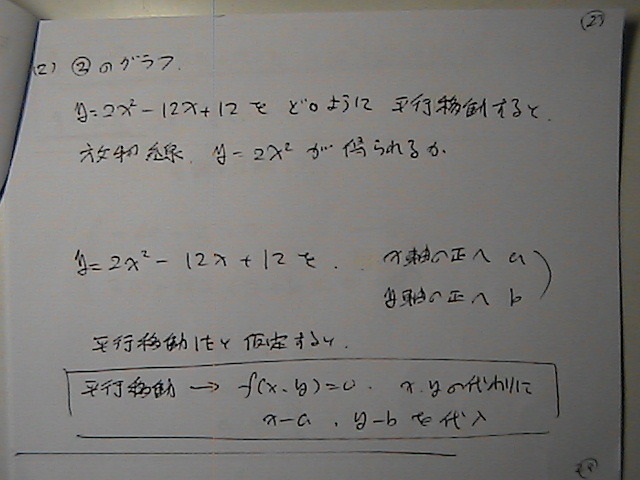 (2)
(2) ②のグラフ.
y=2x²-12x+12を どのように 平行移動すると.
放物線. y=2x² が 得られるか.
y=2x²-12x+12を. x軸の正へ a
y軸の正へ b
平行移動したと仮定すると.
平行移動 → f(x,y)=0. x.yの代わりに
x-a, y-bを代入